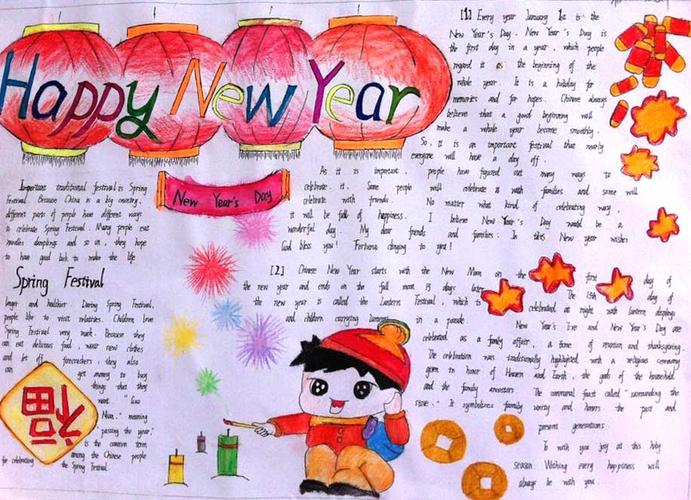 Happy New Year
New Year's Day
[1] Every year January 1st is the
New Year's Day. New Year's Day is
the first day in a year, which people
regard it as the beginning of the
whole year. It is a holiday for
memories and for hopes. Chinese always
believe that a good beginning will
make a whole year become smoothly.
So, it is an important festival that nearly
everyone will have a day off.
As it is important people have figured out many ways to
celebrate it. Some people will celebrate it with families and some will
celebrate with friends. No matter what kind of celebrating way,
it will be full of happiness. I believe New Year's Day would be a
wonderful day. My dear friends and families: In this New year wishes
God bless you! Fortune clinging to you!
Important traditional festival is Spring
Festival. Because China is a big country,
different parts of people have different ways
to celebrate Spring Festival. Many people eat
noodles dumplings and so on, they hope
to have good luck to make the life
Spring Festival
longer and healthier. During Spring Festival,
people like to visit relatives. Children love
Spring Festival very much. Because they
can eat delicious food, wear new clothes
and let off firecrackers, they also
can get money to buy
things that they
want.
Nian," meaning
passing the year,"
is the common term
among the Chinese people
for celebrating the Spring Festival.
福
[2] Chinese New Year starts with the New Moon on the first day of
the new year and ends on the full moon 15 days later. The 15th day of
the new year is called the Lantern Festival, which is celebrated at night with lantern displays
and children carrying lanterns in a parade.
New Year's Eve and New Year's Day are
celebrated as a family affair, a time of reunion and thanksgiving.
The celebration was traditionally highlighted with a religious ceremony
given in honor of Heaven and Earth, the gods of the household
and the family ancestors. The communal feast called "surrounding the
stove". It symbolizes family unity and honors the past and
present generations.
To wish you joy at this holy
season. Wishing every happiness will
always be with you.